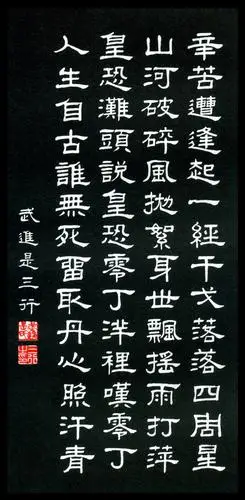 辛苦遭逢起一經干戈落落四周星
山河破碎風拋絮身世飄搖雨打萍
皇恐灘頭說皇恐零丁洋裡嘆零丁
人生自古誰無死留取丹心照汗青
武進是三行